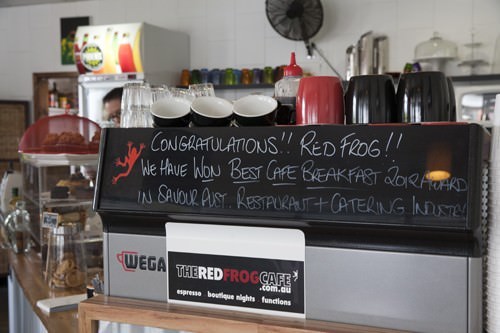 CONGRATULATIONS!! RED FROG!!
WE HAVE WON BEST CAFE BREAKFAST 2012 AWARD
IN SAVOUR AUST. RESTAURANT + CATERING INDUSTRY
WEGA
THEREDFROGCAFE
.com.au
espresso boutique nights functions